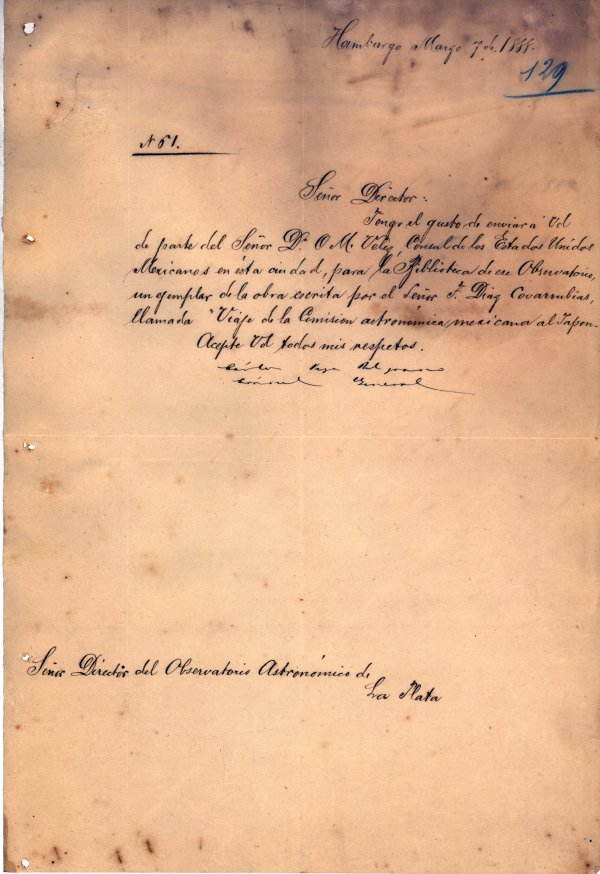 Hamburgo Marzo 7 de 1888.
129
Nº 61.
Señor Director:
Tengo el gusto de enviar á Vd
de parte del Señor Dn O. M. Velez, Cónsul de los Estados Unidos
Mexicanos en ésta ciudad, para la Biblioteca de ese Observatorio,
un ejemplar de la obra escrita por el Señor F. Diaz Covarrubias,
llamada "Viaje de la Comision astronómica mexicana al Japon.
Acepte Vd todos mis respetos.
Carlos Vega Belgrano
Cónsul General
Señor Director del Observatorio Astronómico de
La Plata